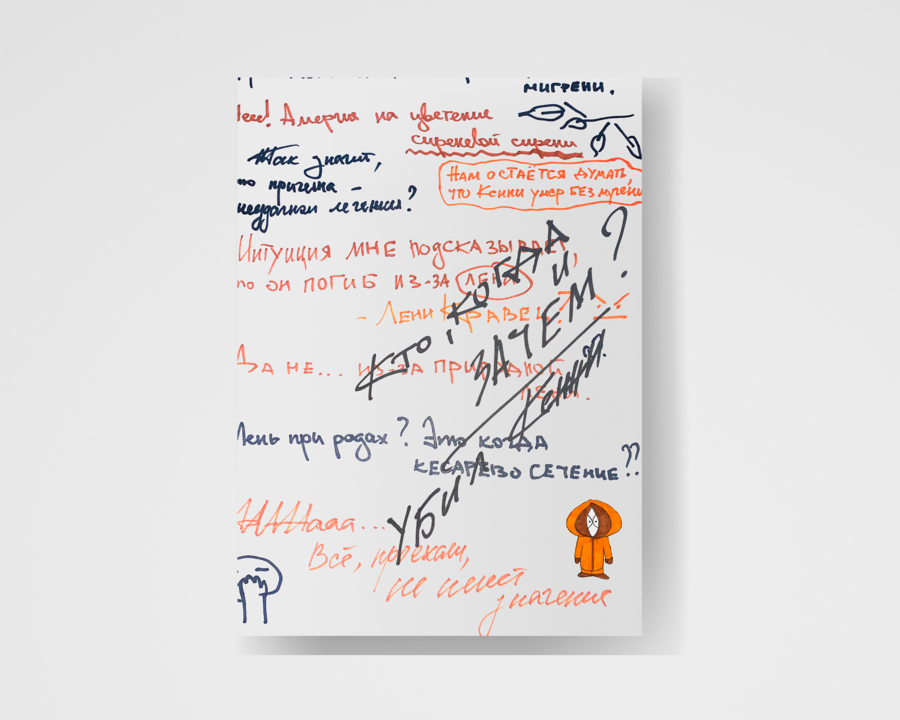 мигрени.
Аллергия на цветение
сиреневой сирени
Так значит,
причина -
неудачная лечения?
Нам остаётся думать,
что Кенни умер без мучени
Интуиция мне подсказывает,
он погиб из-за лени
- Лени Кравец?
Да не... из-за природной
лени.
Лень при родах? Это когда
кесарево сечение??
Аааа...
Всё, проехали,
не имеет
значения
Кто, когда
и,
зачем?
Убил Кенни?